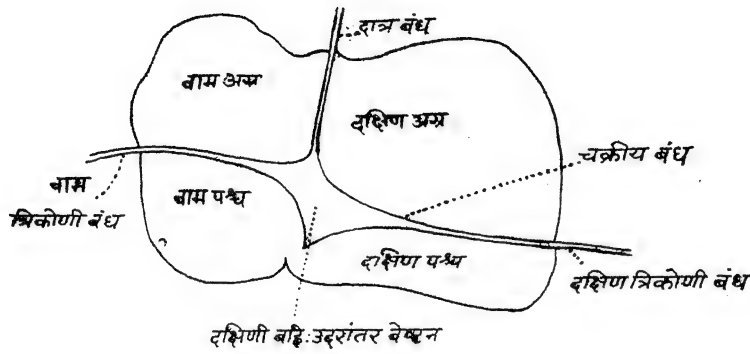 दात्र बंध
वाम अग्र
दक्षिण अग्र
चक्रीय बंध
वाम
त्रिकोणी बंध
वाम पश्च
दक्षिण पश्च
दक्षिण त्रिकोणी बंध
दक्षिणी बहि:उदरांतर वेष्टन